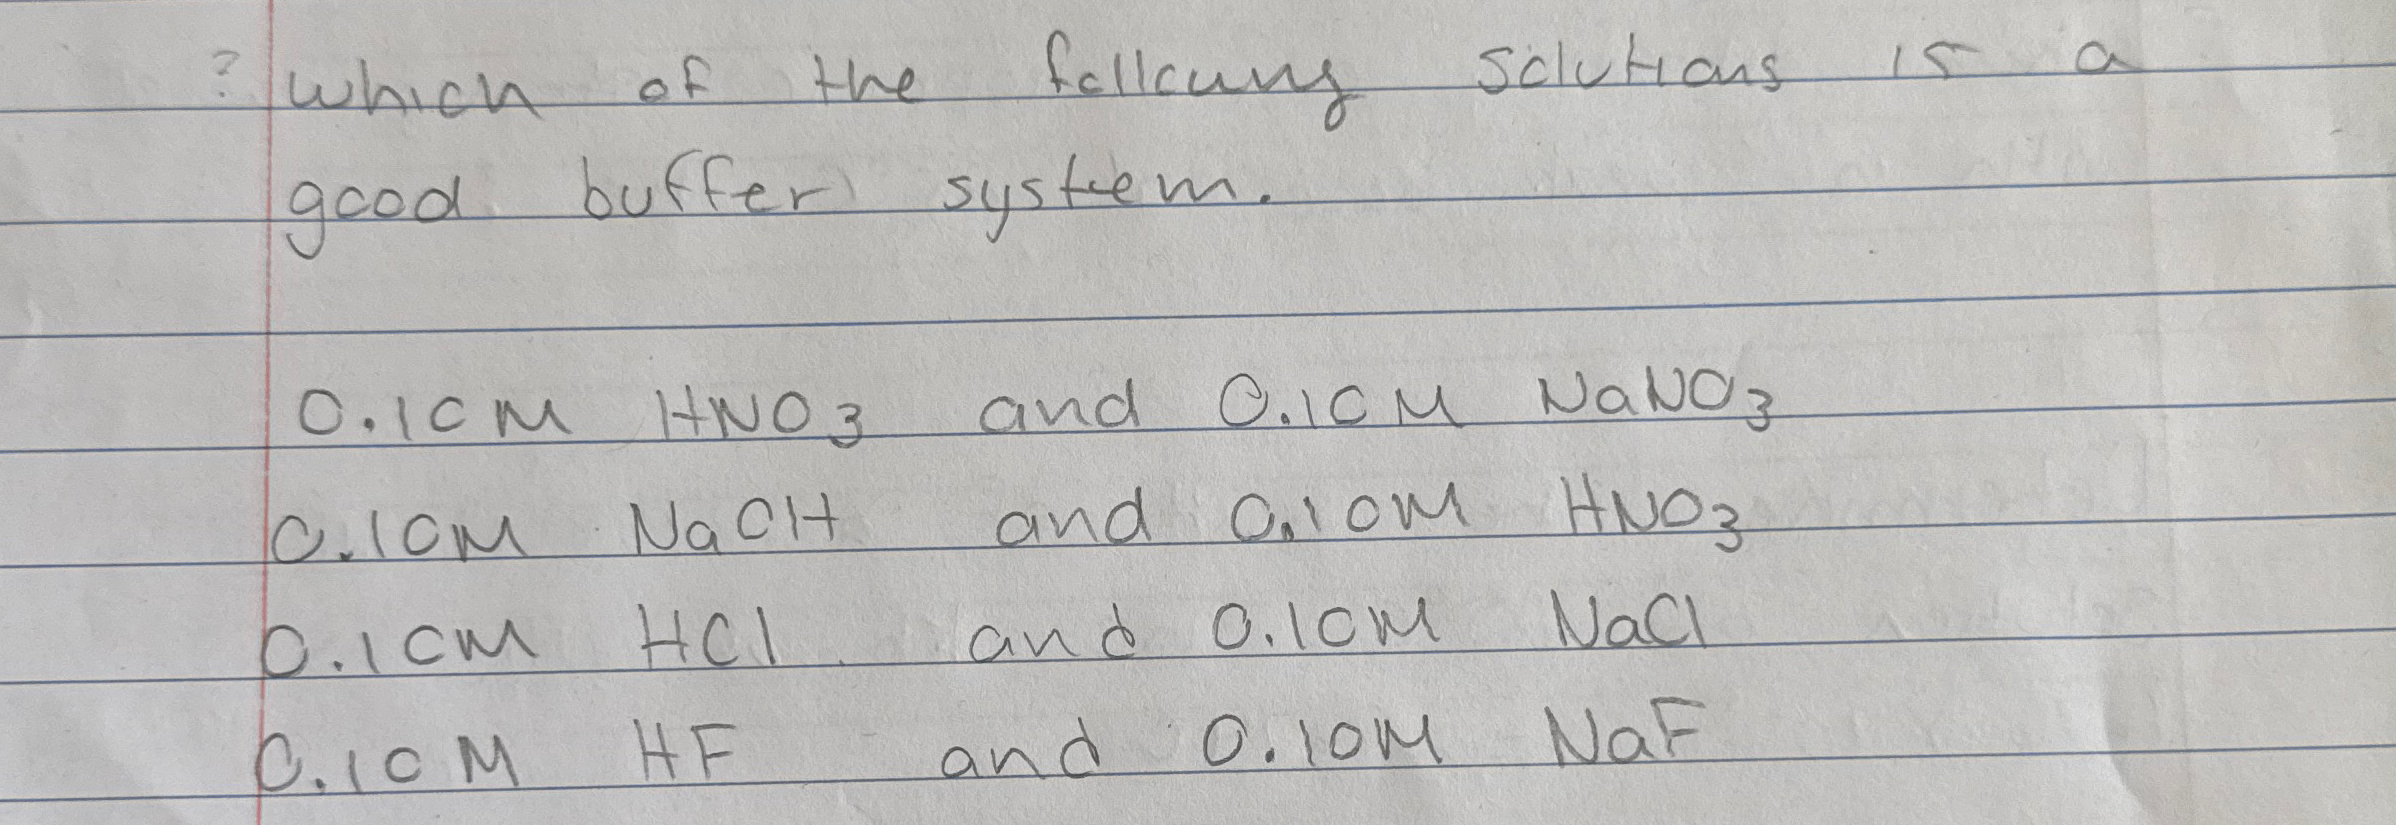 ? which of the following solutions is a
good buffer system.
0.10M HNO3 and 0.10M NaNO3
0.10M NaOH and 0.10M HNO3
0.10M HCl and 0.10M NaCl
0.10M HF and 0.10M NaF